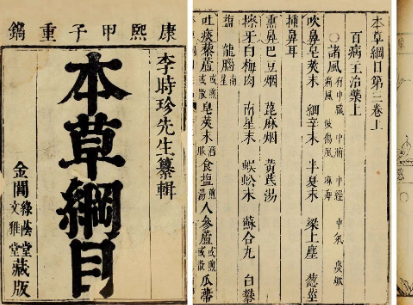 康熙甲子重鐫
李時珍先生纂輯
本草綱目
金閶綠蔭堂
文雅堂
藏版
本草綱目第三卷上
百病主治藥上
諸風
吹鼻皂莢末 細辛末 半夏末 梁上塵 葱莖
插鼻耳
熏鼻巴豆烟 蓖麻烟 黃芪湯
擦牙白梅肉 南星末 蜈蚣末 蘇合丸 白礬
鹽 龍腦 南星
吐痰藜蘆 皂莢末 食鹽 人參蘆 瓜蒂